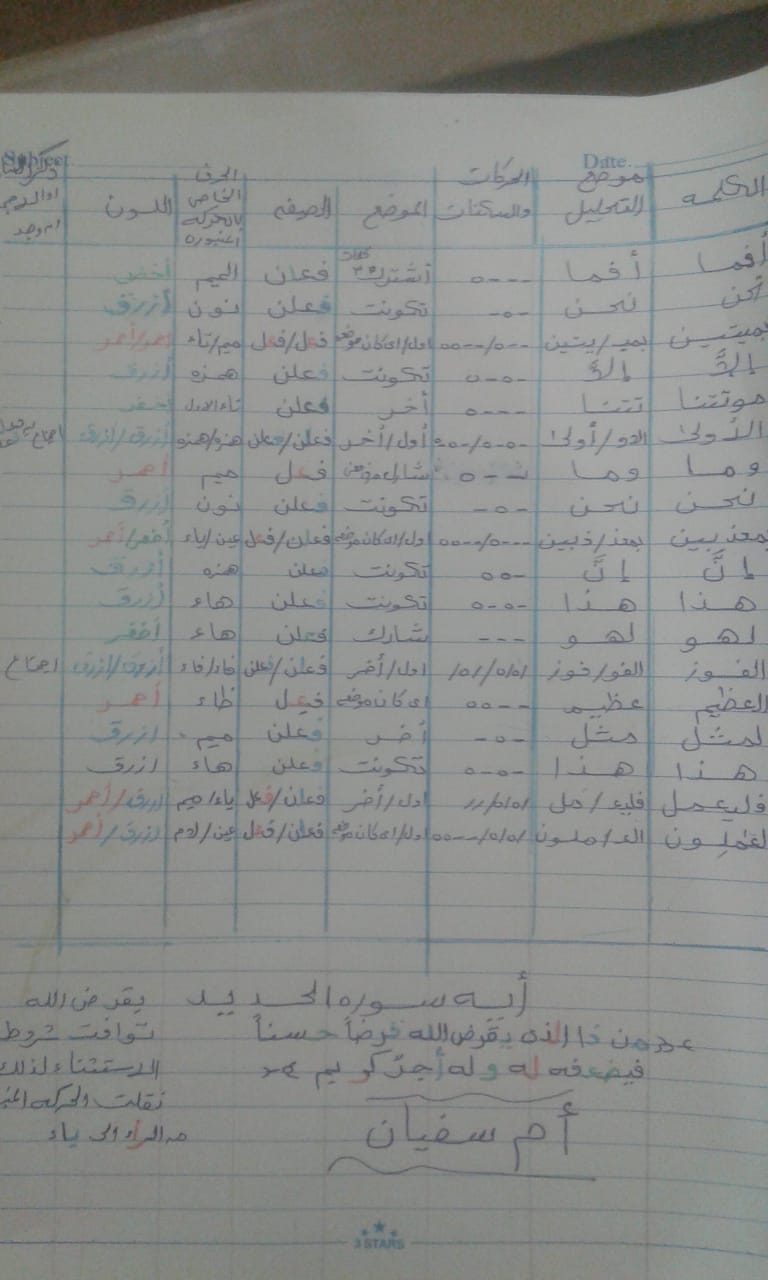 Date.
الكلمه موضع التحليل الحركات والسكنات الموضع الصيغه الحرف الخاص بالحركه المنبوره اللون
أفما أفما ----٥ أشترك ٣ كلمات فعلن الميم أخضر
نحن نحن -٥- تكونت فعلن نون أزرق
بميتين بميـ/يتين اول/اى كان موضعه فعل/فعل ميم/تاء أحمر/أحمر
إلا إلا -٥-٥ تكونت فعلن همزه أزرق
موتتنا تتنا ---٥ أخر فعلن تاء الاولى أخضر
الأولى الاو/أولى أول/أخر فعلن/فعلن همزه/همزه أزرق/أزرق
وما وما --٥ شارك فعل ميم أحمر
نحن نحن -٥- تكونت فعلن نون أزرق
بمعذبين بمعذ/ذبين اول/اى كان موضعه فعلن/فعل عين/باء أخضر/أحمر
إنَّ إنَّ تكونت فعلن همزه أزرق
هذا هذا -٥-٥ تكونت فعلن هاء أزرق
لهو لهو --- شارك فعلن هاء أخضر
الفوز الفو/فوز اول/أخر فعلن/فعلن فاء/فاء أزرق/أزرق
العظيم عظيم --٥٥ اى كان موضعه فعل ظاء أحمر
لمثل مثل -٥- أخر فعلن ميم ازرق
هذا هذا -٥-٥ تكونت فعلن هاء ازرق
فليعمل فليعـ/مل اول/أخر فعلن/فعل ياء/ميم ازرق/أحمر
لعملون العـ/ملون اول/اى كان موضعه فعلن/فعل عين/لام ازرق/أحمر
أيه سوره الحديد
من ذا الذى يقرض الله قرضاً حسناً
فيضعفه له وله أجرٌ كريم
أم سفيان
يقرض الله
توافت شروط
الاستثناء لذلك
نقلت الحركه
من الراء الى ياء
3 STARS